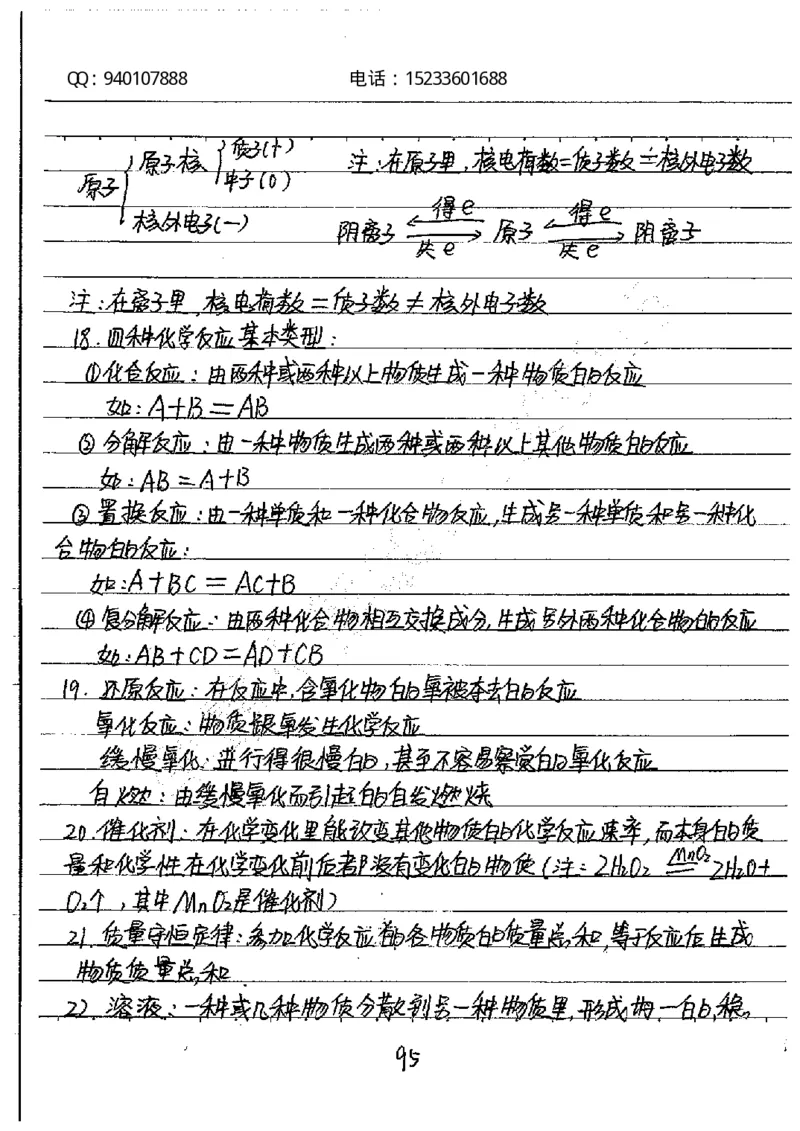 QQ：940107888 电话：15233601688
原子 原子核 质子(+)
中子(0)
核外电子(一)
注：在原子里，核电荷数=质子数=核外电子数
阴离子 得e 失e 原子 得e 失e 阳离子
注：在离子里，核电荷数＝质子数≠核外电子数
18. 四种化学反应基本类型：
①化合反应：由两种或两种以上物质生成一种物质的反应
如：A+B＝AB
②分解反应：由一种物质生成两种或两种以上其他物质的反应
如：AB＝A+B
③置换反应：由一种单质和一种化合物反应，生成另一种单质和另一种化
合物的反应：
如：A+BC＝AC+B
④复分解反应：由两种化合物相互交换成分，生成另外两种化合物的反应
如：AB+CD＝AD+CB
19. 还原反应：在反应中，含氧化物的氧被夺去的反应
氧化反应：物质跟氧发生化学反应
缓慢氧化：进行得很慢的，甚至不容易察觉的氧化反应
自燃：由缓慢氧化而引起的自发燃烧
20. 催化剂：在化学变化里能改变其他物质的化学反应速率，而本身的质
量和化学性在化学变化前后都没有变化的物质（注：2H₂O₂ MnO₂ 2H₂O+
O₂↑，其中MnO₂是催化剂）
21. 质量守恒定律：参加化学反应前的各物质的质量总和，等于反应后生成
物质质量总和
22. 溶液：一种或几种物质分散到另一种物质里，形成均一的、稳
95